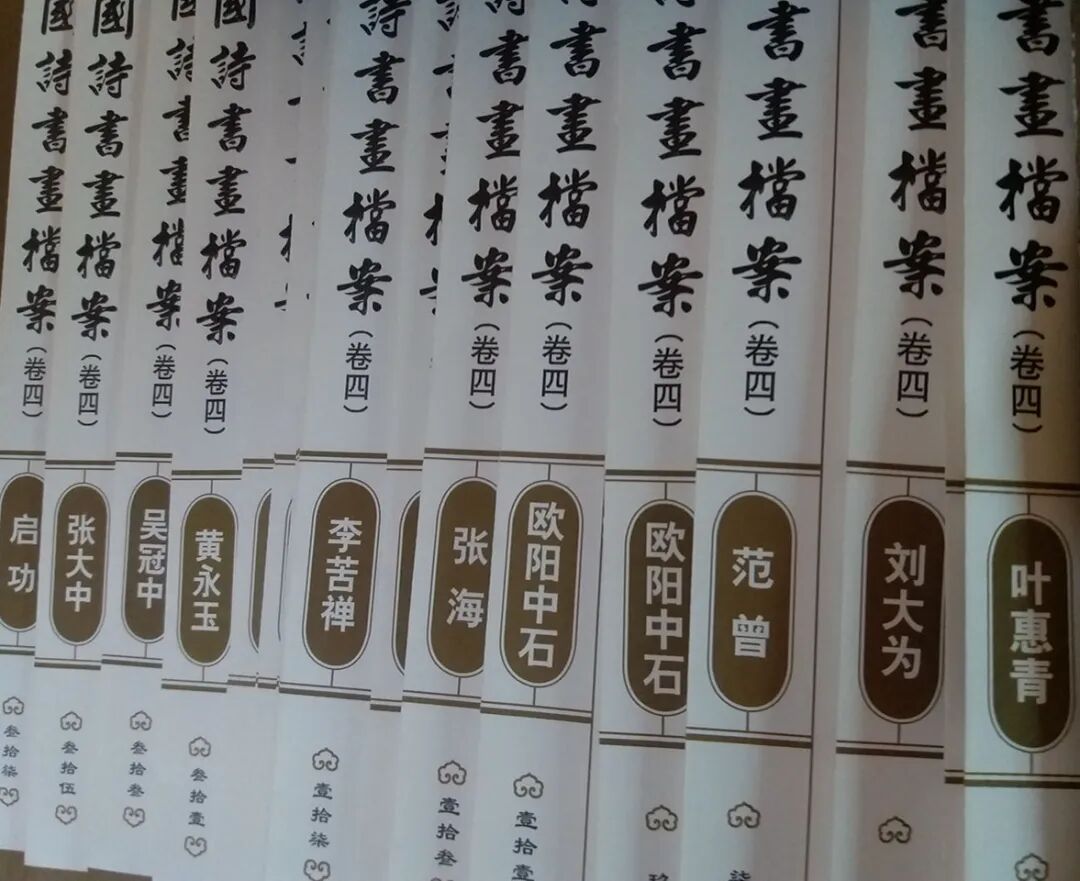 國詩書畫檔案(卷四)
启功
叁拾柒
國詩書畫檔案(卷四)
张大中
叁拾伍
國詩書畫檔案(卷四)
吴冠中
叁拾叁
國詩書畫檔案(卷四)
黄永玉
叁拾壹
詩書畫檔案(卷四)
李苦禅
壹拾柒
書畫檔案(卷四)
张海
壹拾叁
書畫檔案(卷四)
欧阳中石
壹拾壹
書畫檔案(卷四)
欧阳中石
書畫檔案(卷四)
范曾
柒
書畫檔案(卷四)
刘大为
書畫檔案(卷四)
叶惠青